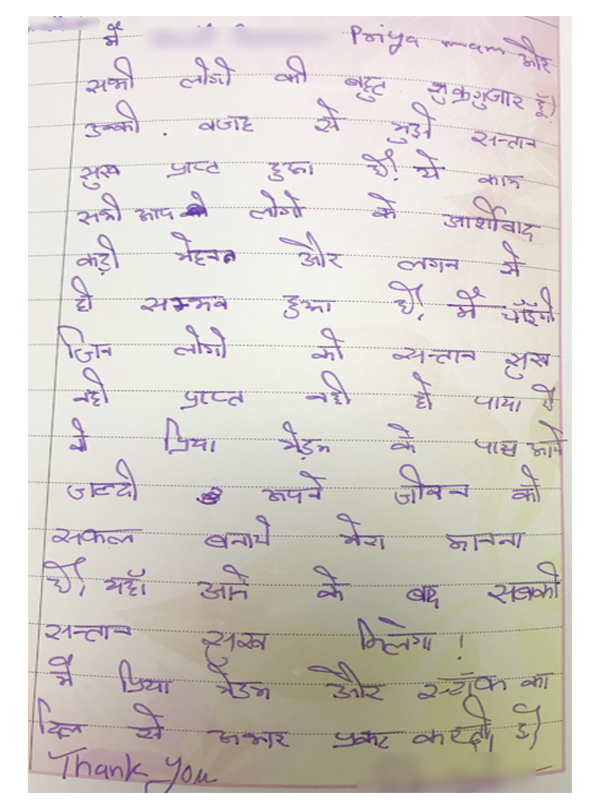 मैं Priya mam और
सभी लोगो की बहुत शुक्रगुजार हूँ।
उनकी वजह से मुझे सन्तान
सुख प्राप्त हुआ है। ये काम
सभी आप लोगो के आर्शीवाद
कड़ी मेहनत और लगन से
ही सम्भव हुआ है, मैं चाहूँगी
जिन लोगो को सन्तान सुख
नही प्राप्त नही हो पाया है
वे प्रिया मैडम के पास आये
जल्दी अपने जीवन को
सफल बनाये मेरा मानना
है, यहाँ आने के बाद सबको
सन्तान सुख मिलेगा !
मैं प्रिया मैडम और स्टॉफ का
दिल से आभार प्रकट करती हूँ।
Thank You